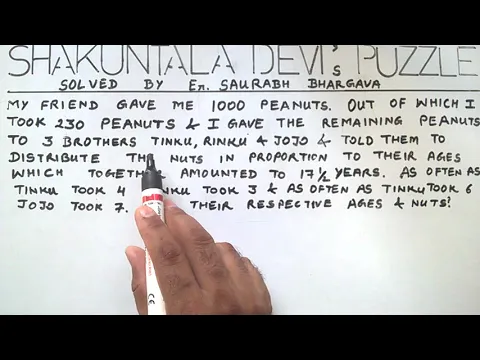 SHAKUNTALA DEVI'S PUZZLE
SOLVED BY Er. SAURABH BHARGAVA
MY FRIEND GAVE ME 1000 PEANUTS. OUT OF WHICH I
TOOK 230 PEANUTS & I GAVE THE REMAINING PEANUTS
TO 3 BROTHERS TINKU, RINKU & JOJO & TOLD THEM TO
DISTRIBUTE THE NUTS IN PROPORTION TO THEIR AGES
WHICH TOGETHER AMOUNTED TO 17½ YEARS. AS OFTEN AS
TINKU TOOK 4 TOOK 3 & AS OFTEN AS TINKU TOOK 6
JOJO TOOK 7. THEIR RESPECTIVE AGES & NUTS!